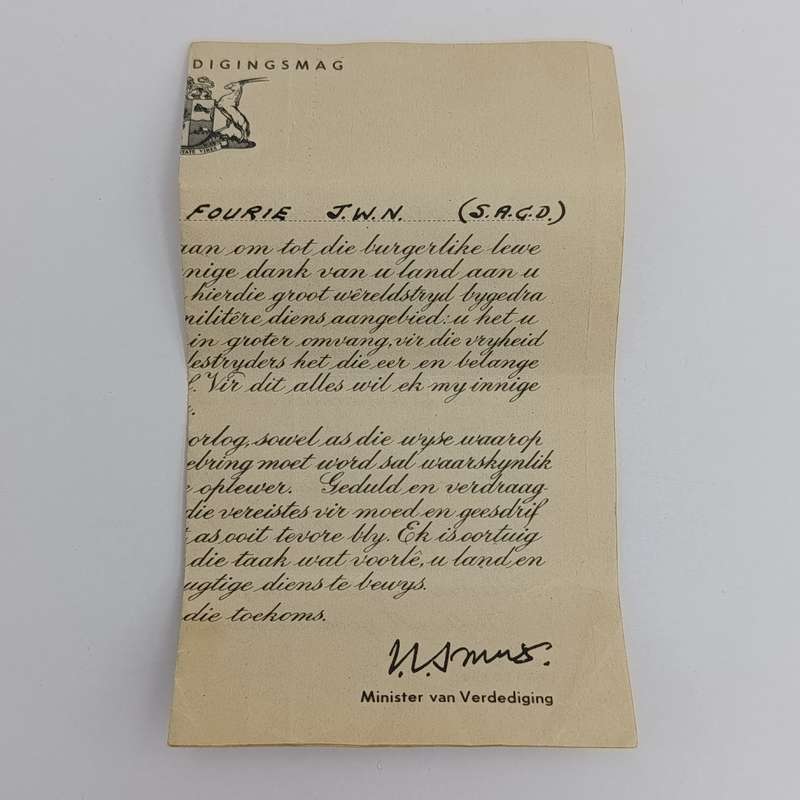 DIGINGSMAG
FOURIE J.W.N. (S.A.G.D.)
aan om tot die burgerlike lewe
nige dank van u land aan u
hierdie groot wêreldstryd bygedra
militêre diens aangebied: u het u
in groter omvang, vir die vryheid
estryders het die eer en belange
Vir dit alles wil ek my innige
orlog, sowel as die wyse waarop
ebring moet word sal waarskynlik
oplewer. Geduld en verdraag-
die vereistes vir moed en geesdrif
as ooit tevore bly. Ek is oortuig
die taak wat voorlê, u land en
ugtige dienste bewys.
die toekoms.
J.C. Smuts.
Minister van Verdediging